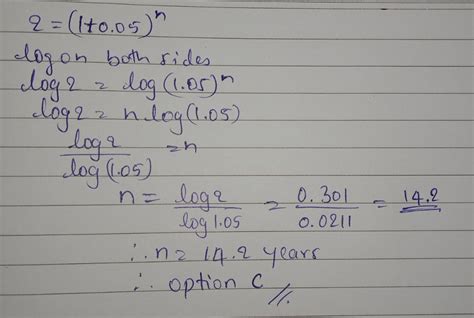 2 = (1+0.05)^n
log on both sides
log 2 = log (1.05)^n
log 2 = n log (1.05)
log 2 / log (1.05) = n
n = log 2 / log 1.05 = 0.301 / 0.0211 = 14.2
∴ n = 14.2 years
∴ option C //.